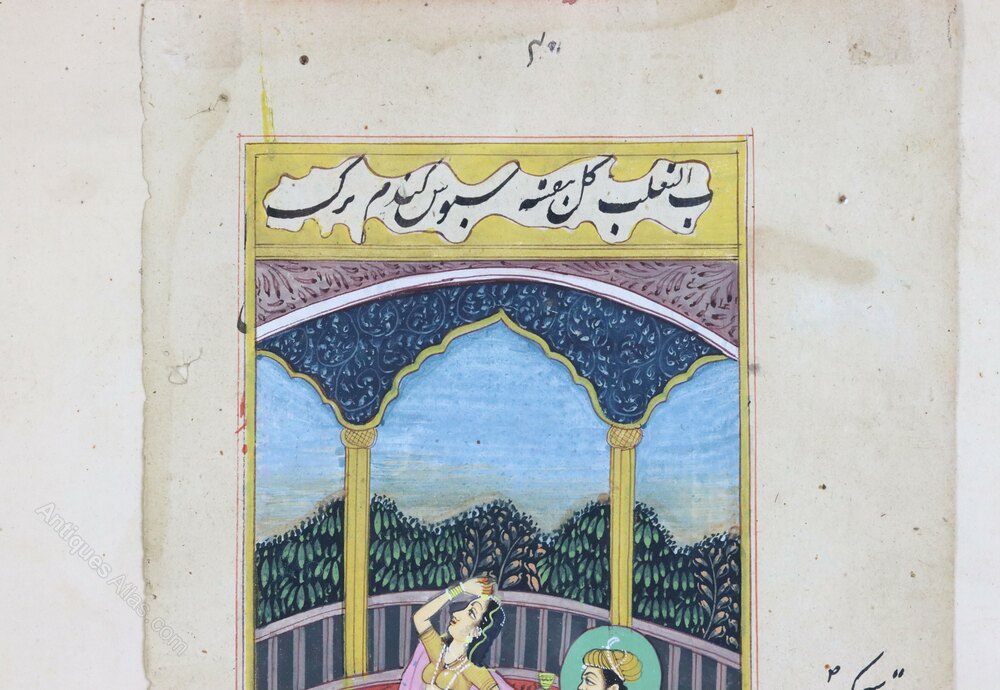 ب الثعلب گل بنفشه سبوس گندم برگ
Antiques Atlas.com